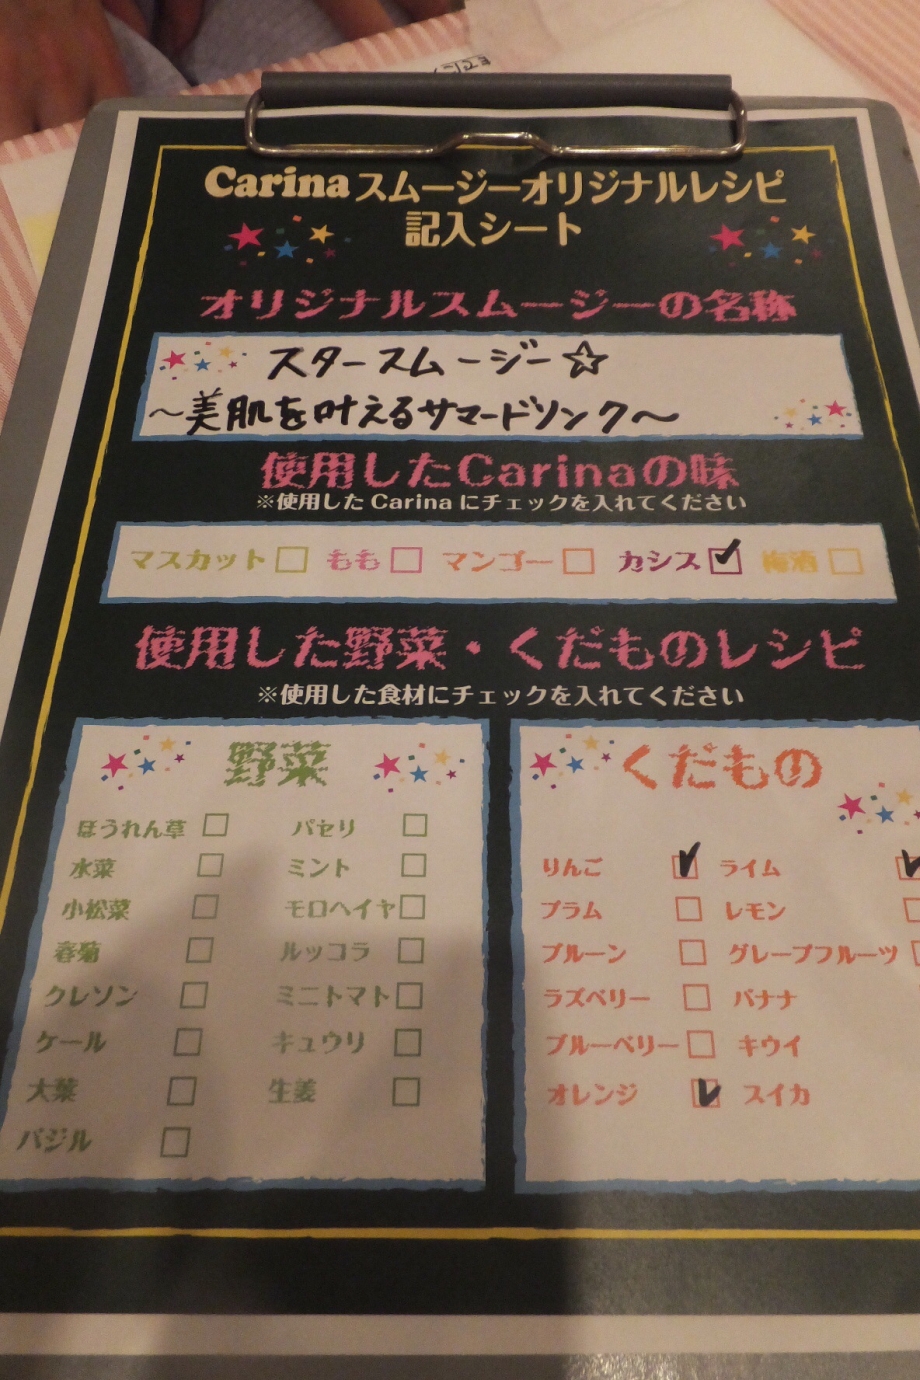 Carinaスムージーオリジナルレシピ
記入シート
オリジナルスムージーの名称
スタースムージー☆
～美肌を叶えるサマードリンク～
使用したCarinaの味
※使用したCarinaにチェックを入れてください
マスカット□ もも□ マンゴー□ カシス☑ 梅酒□
使用した野菜・くだものレシピ
※使用した食材にチェックを入れてください
野菜
ほうれん草□ パセリ□
水菜□ ミント□
小松菜□ モロヘイヤ□
春菊□ ルッコラ□
クレソン□ ミニトマト□
ケール□ キュウリ□
大葉□ 生姜□
バジル□
くだもの
りんご☑ ライム☑
プラム□ レモン□
プルーン□ グレープフルーツ□
ラズベリー□ バナナ
ブルーベリー□ キウイ
オレンジ☑ スイカ